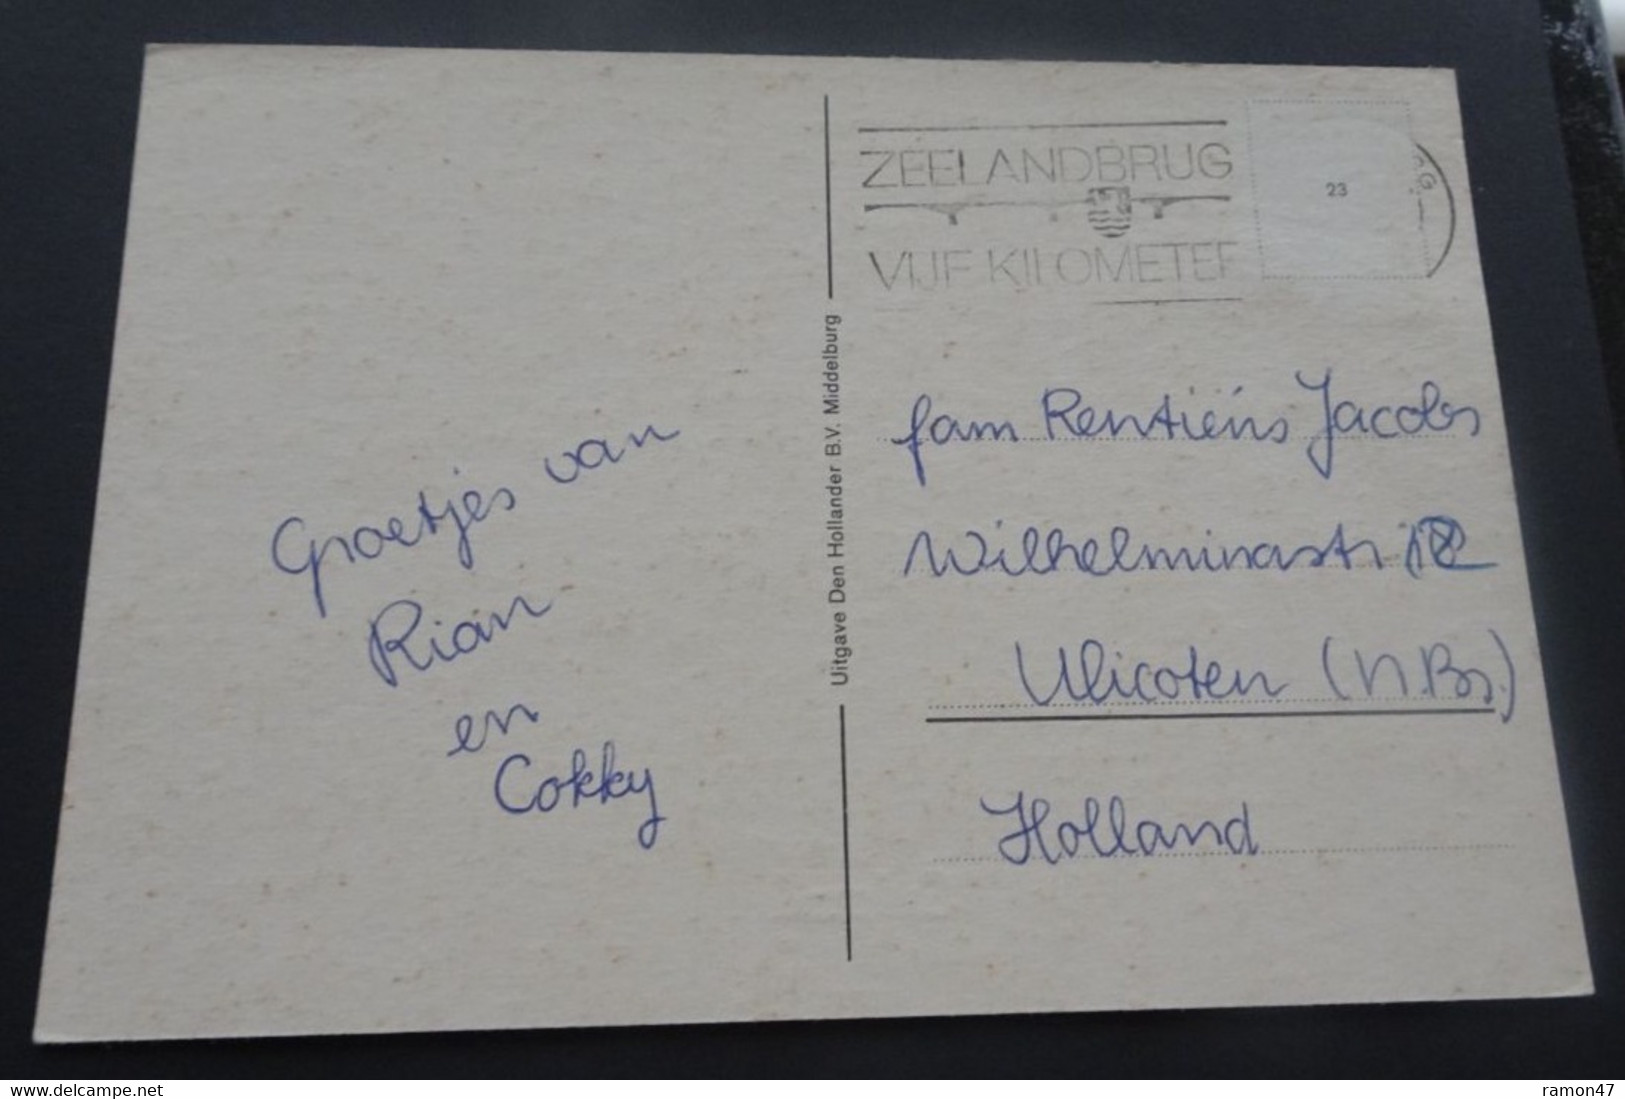 ZEELANDBRUG
VIJF KILOMETER
23
Groetjes van
Rian
en
Cokky
Uitgave Den Hollander B.V. Middelburg
fam Rentiëns Jacobs
Wilhelminastr 12
Ulicoten (N.Br.)
Holland
www.delcampe.net
ramon47